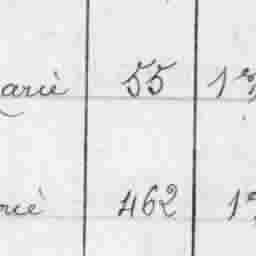 arié 55 1
rié 462 1